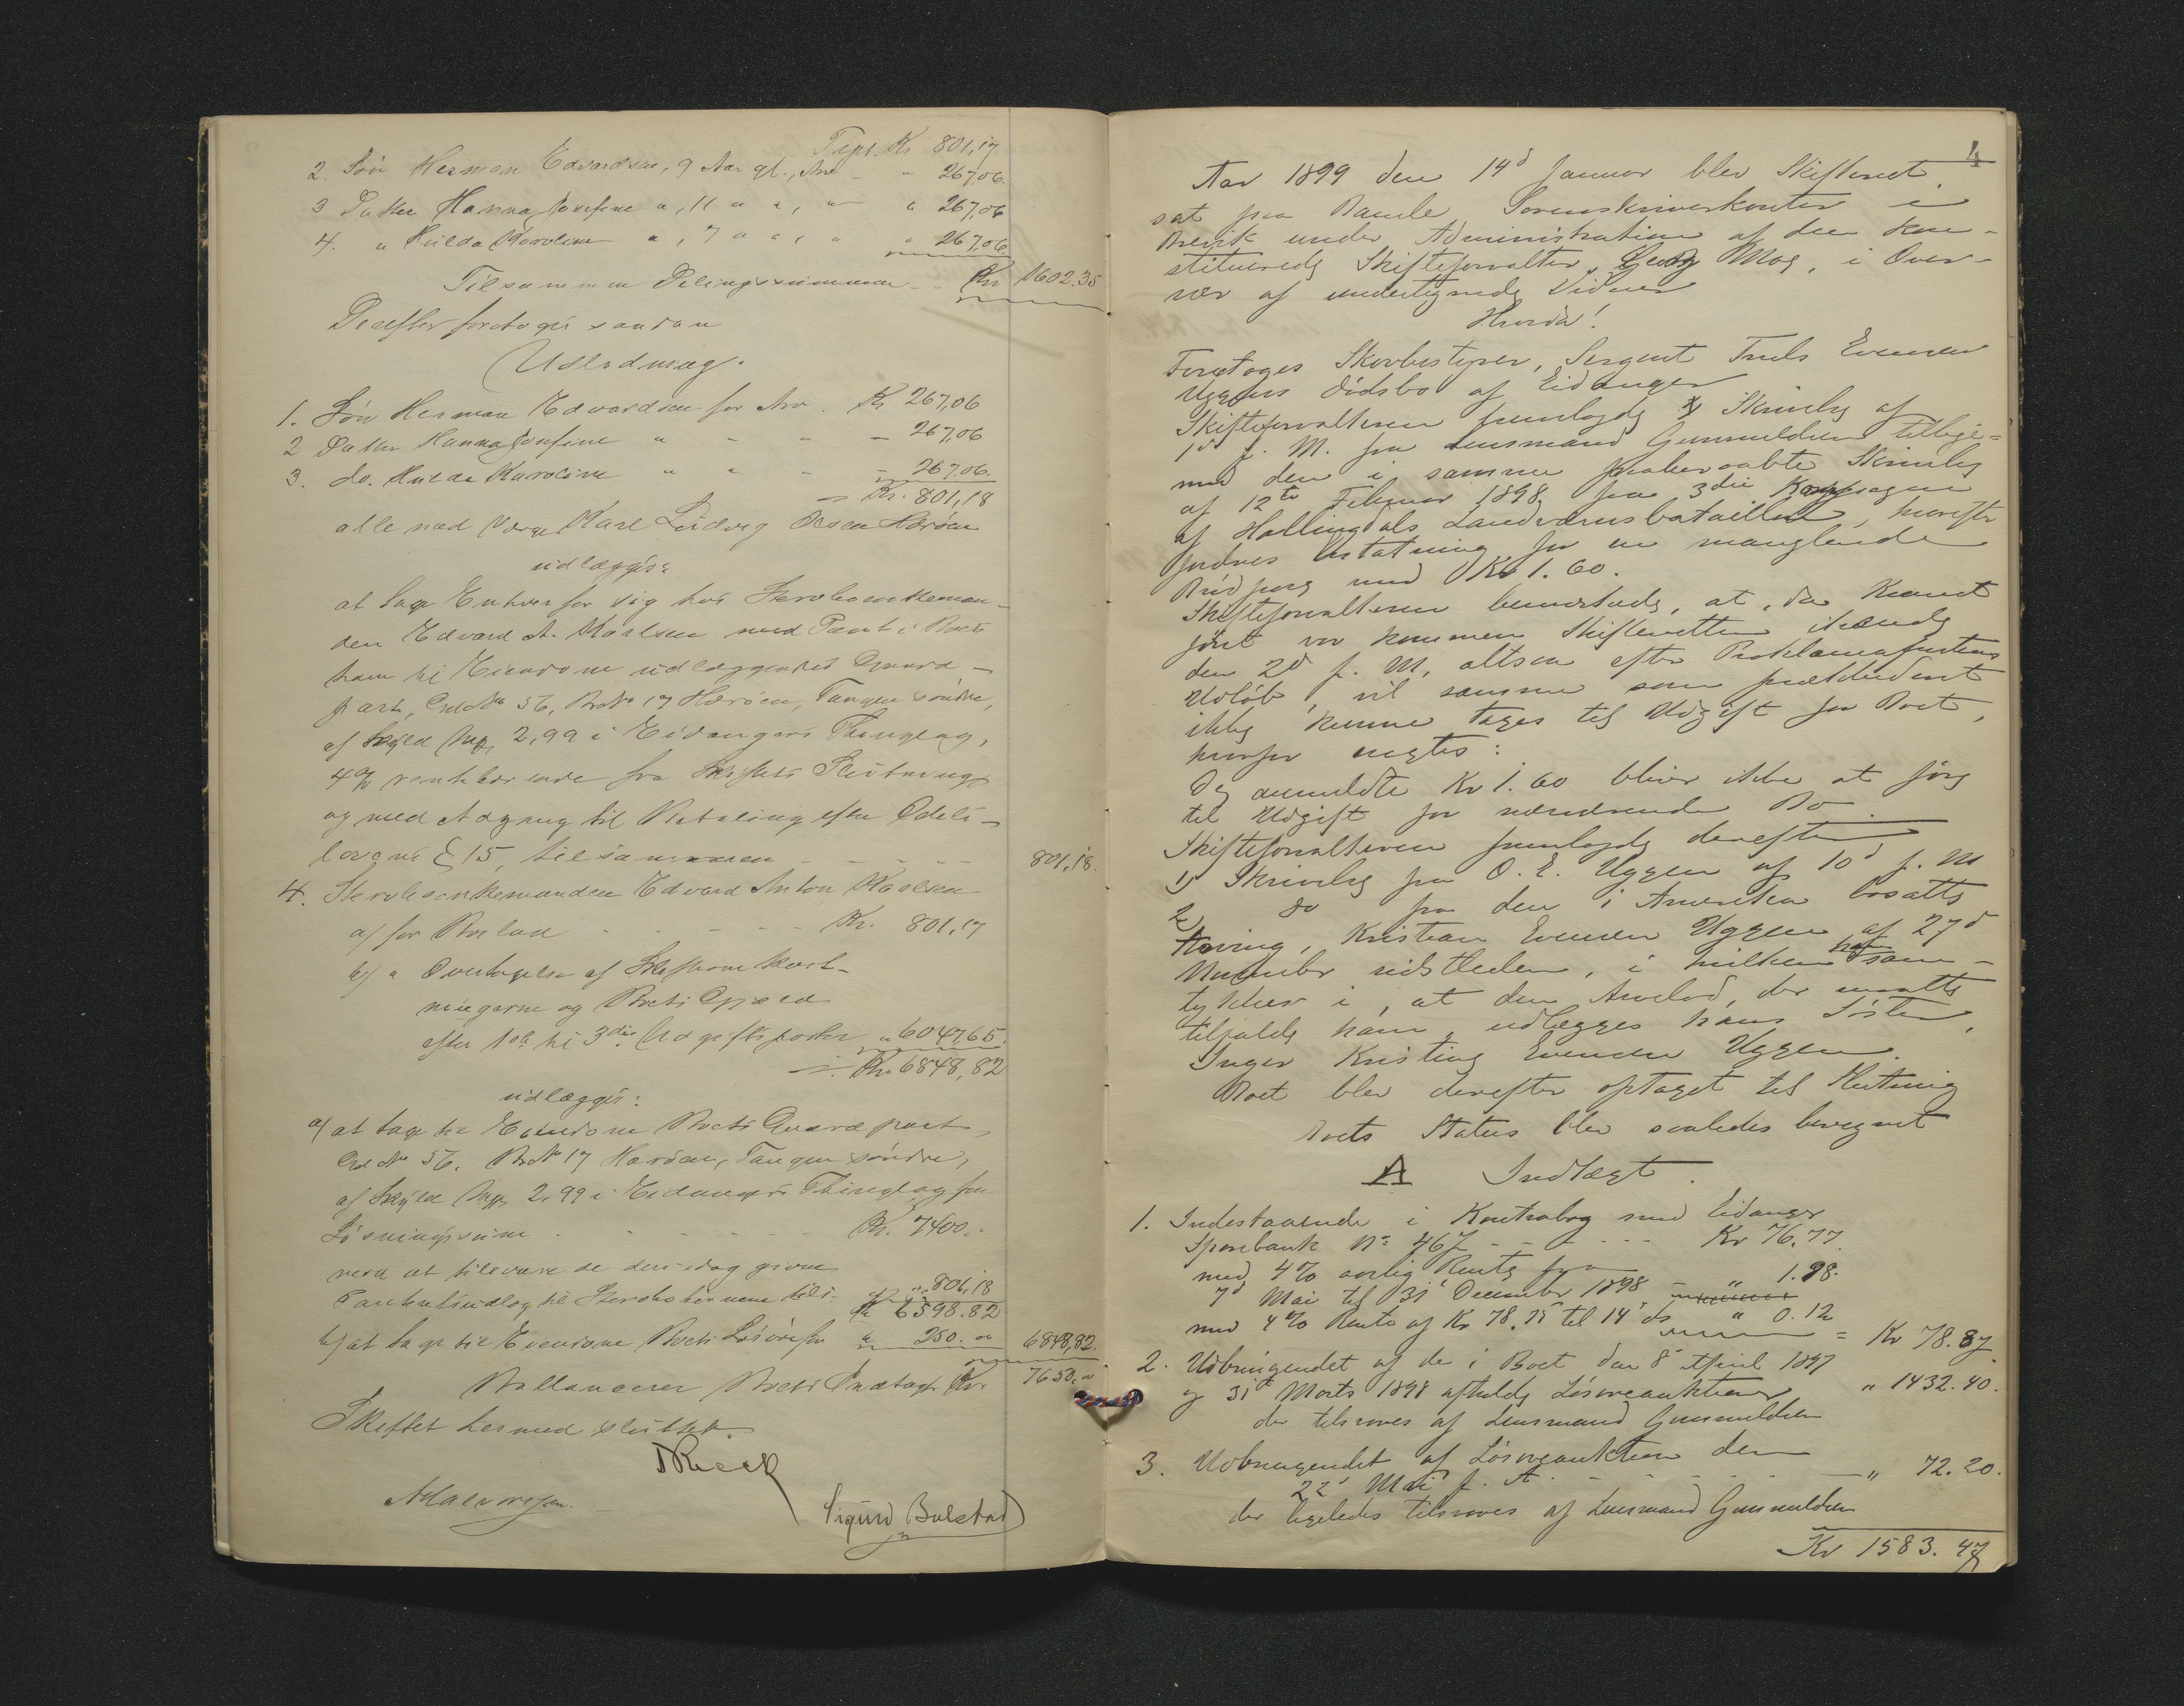 Tspt. Kr 801,17
2. Søn Herman Edvardsen, 9 Aar gl., Arv - " 267,06.
3 Datter Hanna Josefine ", 11 " ", " " 267,06
4. " Hulda Karoline ", 7 " ", " " 267,06
Tilsammen Delingssummen - Kr 1602.35
Derefter foretoges saadan
Udlodning.
1. Søn Herman Edvardsen for Arv. Kr 267,06
2 Datter Hanna Josefine " - " - 267,06
3. do. Hulda Karoline " " - - 267,06.
= Kr. 801,18
alle med Værge Karl Ludvig Olsen Herøen
udlægges:
at tage Enhver for sig hos Sterboenkeman-
den Edvard A. Karlsen med Pant i Boets
ham til Eiendom udlæggendes Gaard-
part, Grd No 56, Br No 17 Herøen, Tangen søndre,
af Skyld Mrk 2,99 i Eidangers Thinglag,
4% rentebærende fra Skiftets Slutning
og med Adgang til Betaling efter Odels-
lovens § 15, tilsammen - - - - 801,18.
4. Sterboenkemanden Edvard Anton Karlsen
a/ for Boslod - - - - Kr. 801,17
b/ " Overtagelse af Skifteomkost-
ningerne og Boets Gjæld
efter 1ste til 3die Udgiftsposter " 6047,65.
= Kr 6848,82
udlægges:
a/ at tage til Eiendom Boets Gaardpart,
Grd No 56, Br No 17 Herøen, Tangen søndre,
af Skyld Mrk 2,99 i Eidangers Thinglag for
Løsningssum - - - - Kr. 7400.-
med at tilsvare de den idag givne
Panteudlæg til Sterbobørnene tils. " 801,18
Kr 6598.82
b/ at tage til Eiendom Boets Løsøre for " 250. " 6848,82.
Ballancerer Boets Indtægt Kr 7650,"
Skiftet hermed sluttet.
Reck
A Halvorsen.
Sigurd Bolstad
4
Aar 1899 den 14d Januar blev Skifteret
sat paa Bamle Sorenskriverkontor i
Brevik under Administration af den kon-
stituerede Skifteforvalter, Georg Moe, i Over-
vær af undertegnede Vidner
Hvorda!
Foretoges Skovbestyrer, Sergent Truls Evensen
Uggens Dødsbo af Eidanger
Skifteforvalteren fremlagde Skrivelse af
1ste f. M. fra Lensmand Gunnuldsen tillige-
med den i samme paaberaabte Skrivelse
af 12te Februar 1898 fra 3die Kompagni
af Hallingdals Landværnsbataillon, hvorefter
fordres Erstatning for en manglende
Brødpose med Kr 1.60.
Skifteforvalteren bemærkede, at, da Kravet
først var kommen Skifteretten ihænde
den 2d f. M., altsaa efter Proklamafristens
Udløb, vil samme som prækluderet
ikke kunne tages til Udgift for Boet,
hvorfor eragtes:
De anmeldte Kr 1.60 bliver ikke at føre
til Udgift for nærværende Bo
Skifteforvalteren fremlagde derefter
1) Skrivelse fra O. E. Uggen af 10d f. M
2) do fra den i Amerika bosatte
Arving, Kristian Evensen Uggen af 27d
November sidstleden, i hvilken han sam-
tykker i, at den Arvelod, der maatte
tilfalde ham, udlægges hans Søster,
Inger Kristine Evensen Uggen.
Boet blev derefter optaget til Slutning
Boets Status blev saaledes beregnet
A Indtægt.
1. Indestaaende i Kontrabog med Eidanger
Sparebank No 467 - - - - Kr 76.77
med 4% aarlig Rente fra
7d Mai til 31d December 1898 - " 1.98.
med 4% Rente af Kr 78.75 til 14d ds " 0.12
= Kr 78.87
2. Udbringendet af de i Boet den 8d April 1897
og 31d Marts 1898 afholdte Løsøreauktioner " 1432.40.
der tilsvares af Lensmand Gunnuldsen
3. Udbringendet af Løsøreauktion den
22d Mai f. A. - - - - - " 72.20.
der ligeledes tilsvares af Lensmand Gunnuldsen
Kr 1583.47